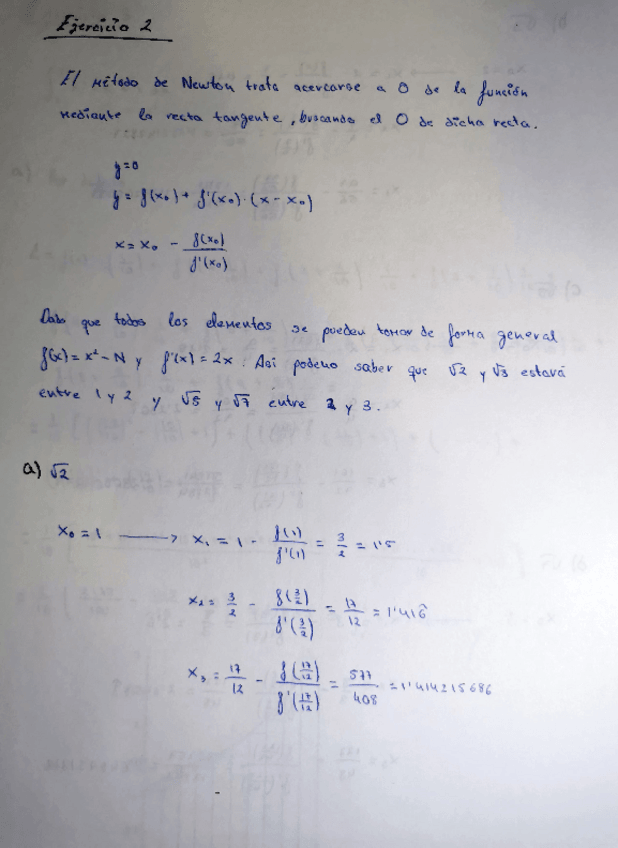 Ejercicio 2
El método de Newton trata acercarse a 0 de la función
mediante la recta tangente, buscando el 0 de dicha recta.
y=0
y = f(x₀) + f'(x₀)·(x - x₀)
x = x₀ - f(x₀)/f'(x₀)
Dado que todos los elementos se pueden tomar de forma general
f(x) = x² - N y f'(x) = 2x. Asi podemo saber que √2 y √3 estará
entre 1 y 2 y √5 y √7 entre 2 y 3.
a) √2
x₀ = 1 ⟶ x₁ = 1 - f(1)/f'(1) = 3/2 = 1'5
x₂ = 3/2 - f(3/2)/f'(3/2) = 17/12 = 1'416̂
x₃ = 17/12 - f(17/12)/f'(17/12) = 577/408 = 1'414215686